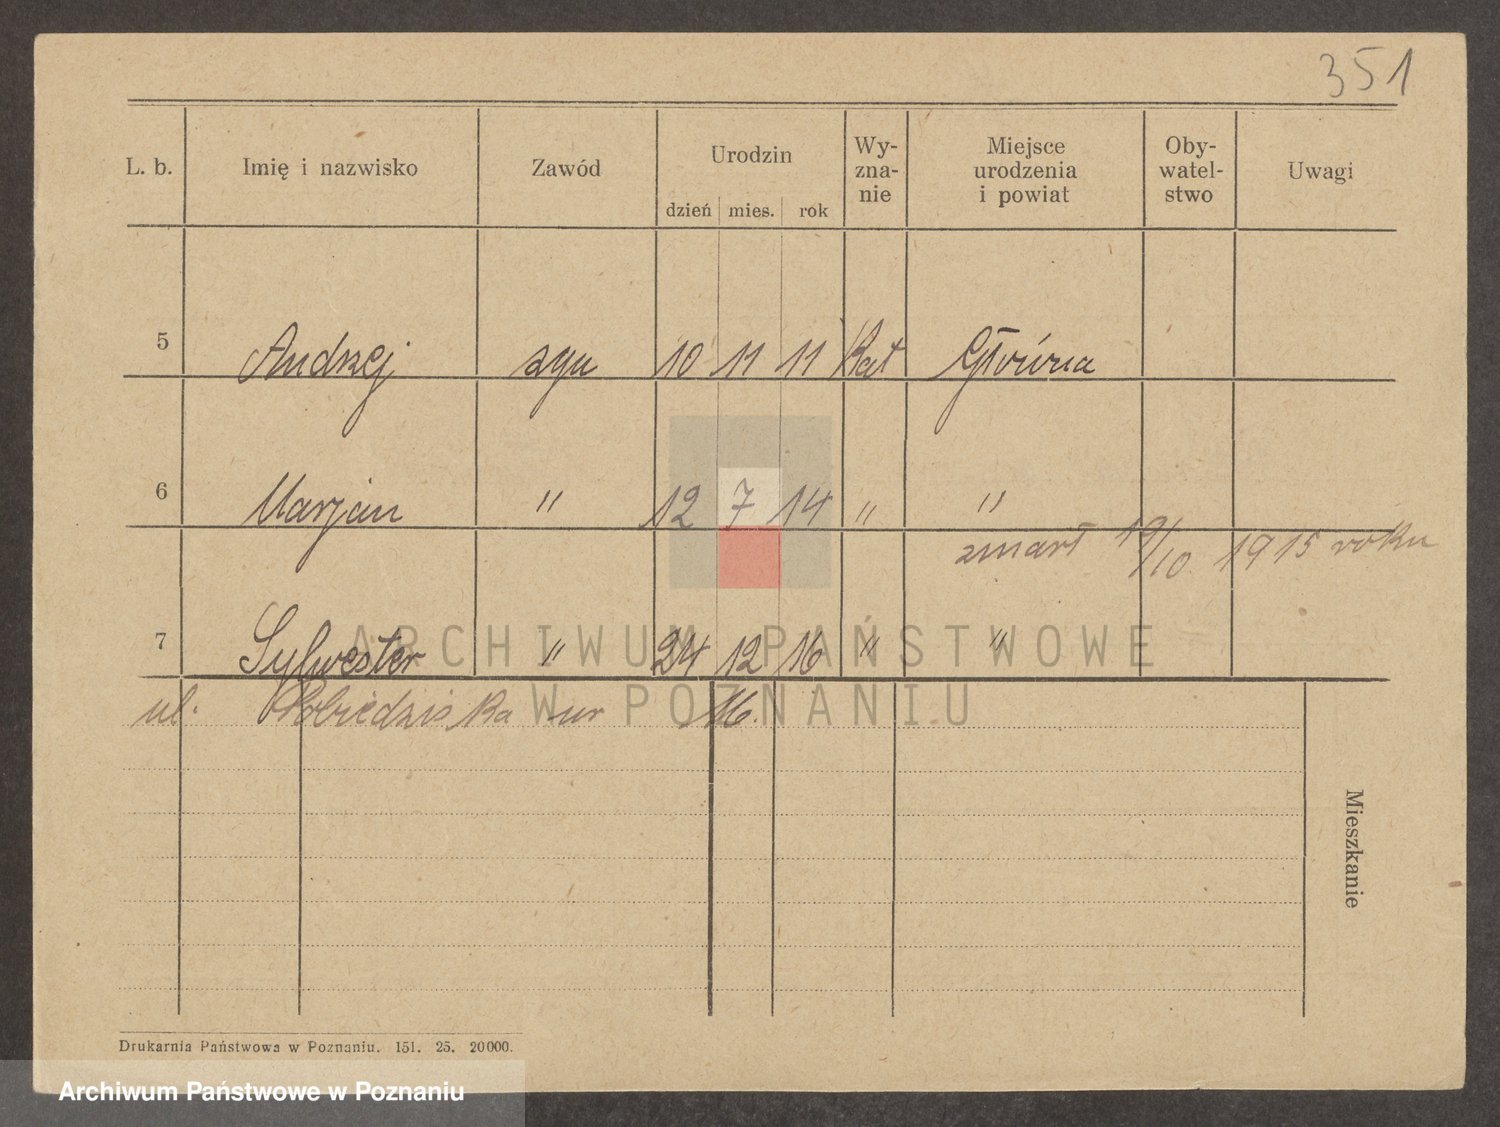 351
L. b. Imię i nazwisko Zawód Urodzin dzień mies. rok Wy-zna-nie Miejsce urodzenia i powiat Oby-watel-stwo Uwagi
5 Andrzej syn 10 11 11 Kat Główna
6 Marjan " 12 7 14 " "
zmarł 19/10 1915 roku
7 Sylwester " 24 12 16 " "
ARCHIWUM PAŃSTWOWE
W POZNANIU
ul. Pobiedziska nr 16.
Mieszkanie
Drukarnia Państwowa w Poznaniu. 151. 25. 20000.
Archiwum Państwowe w Poznaniu